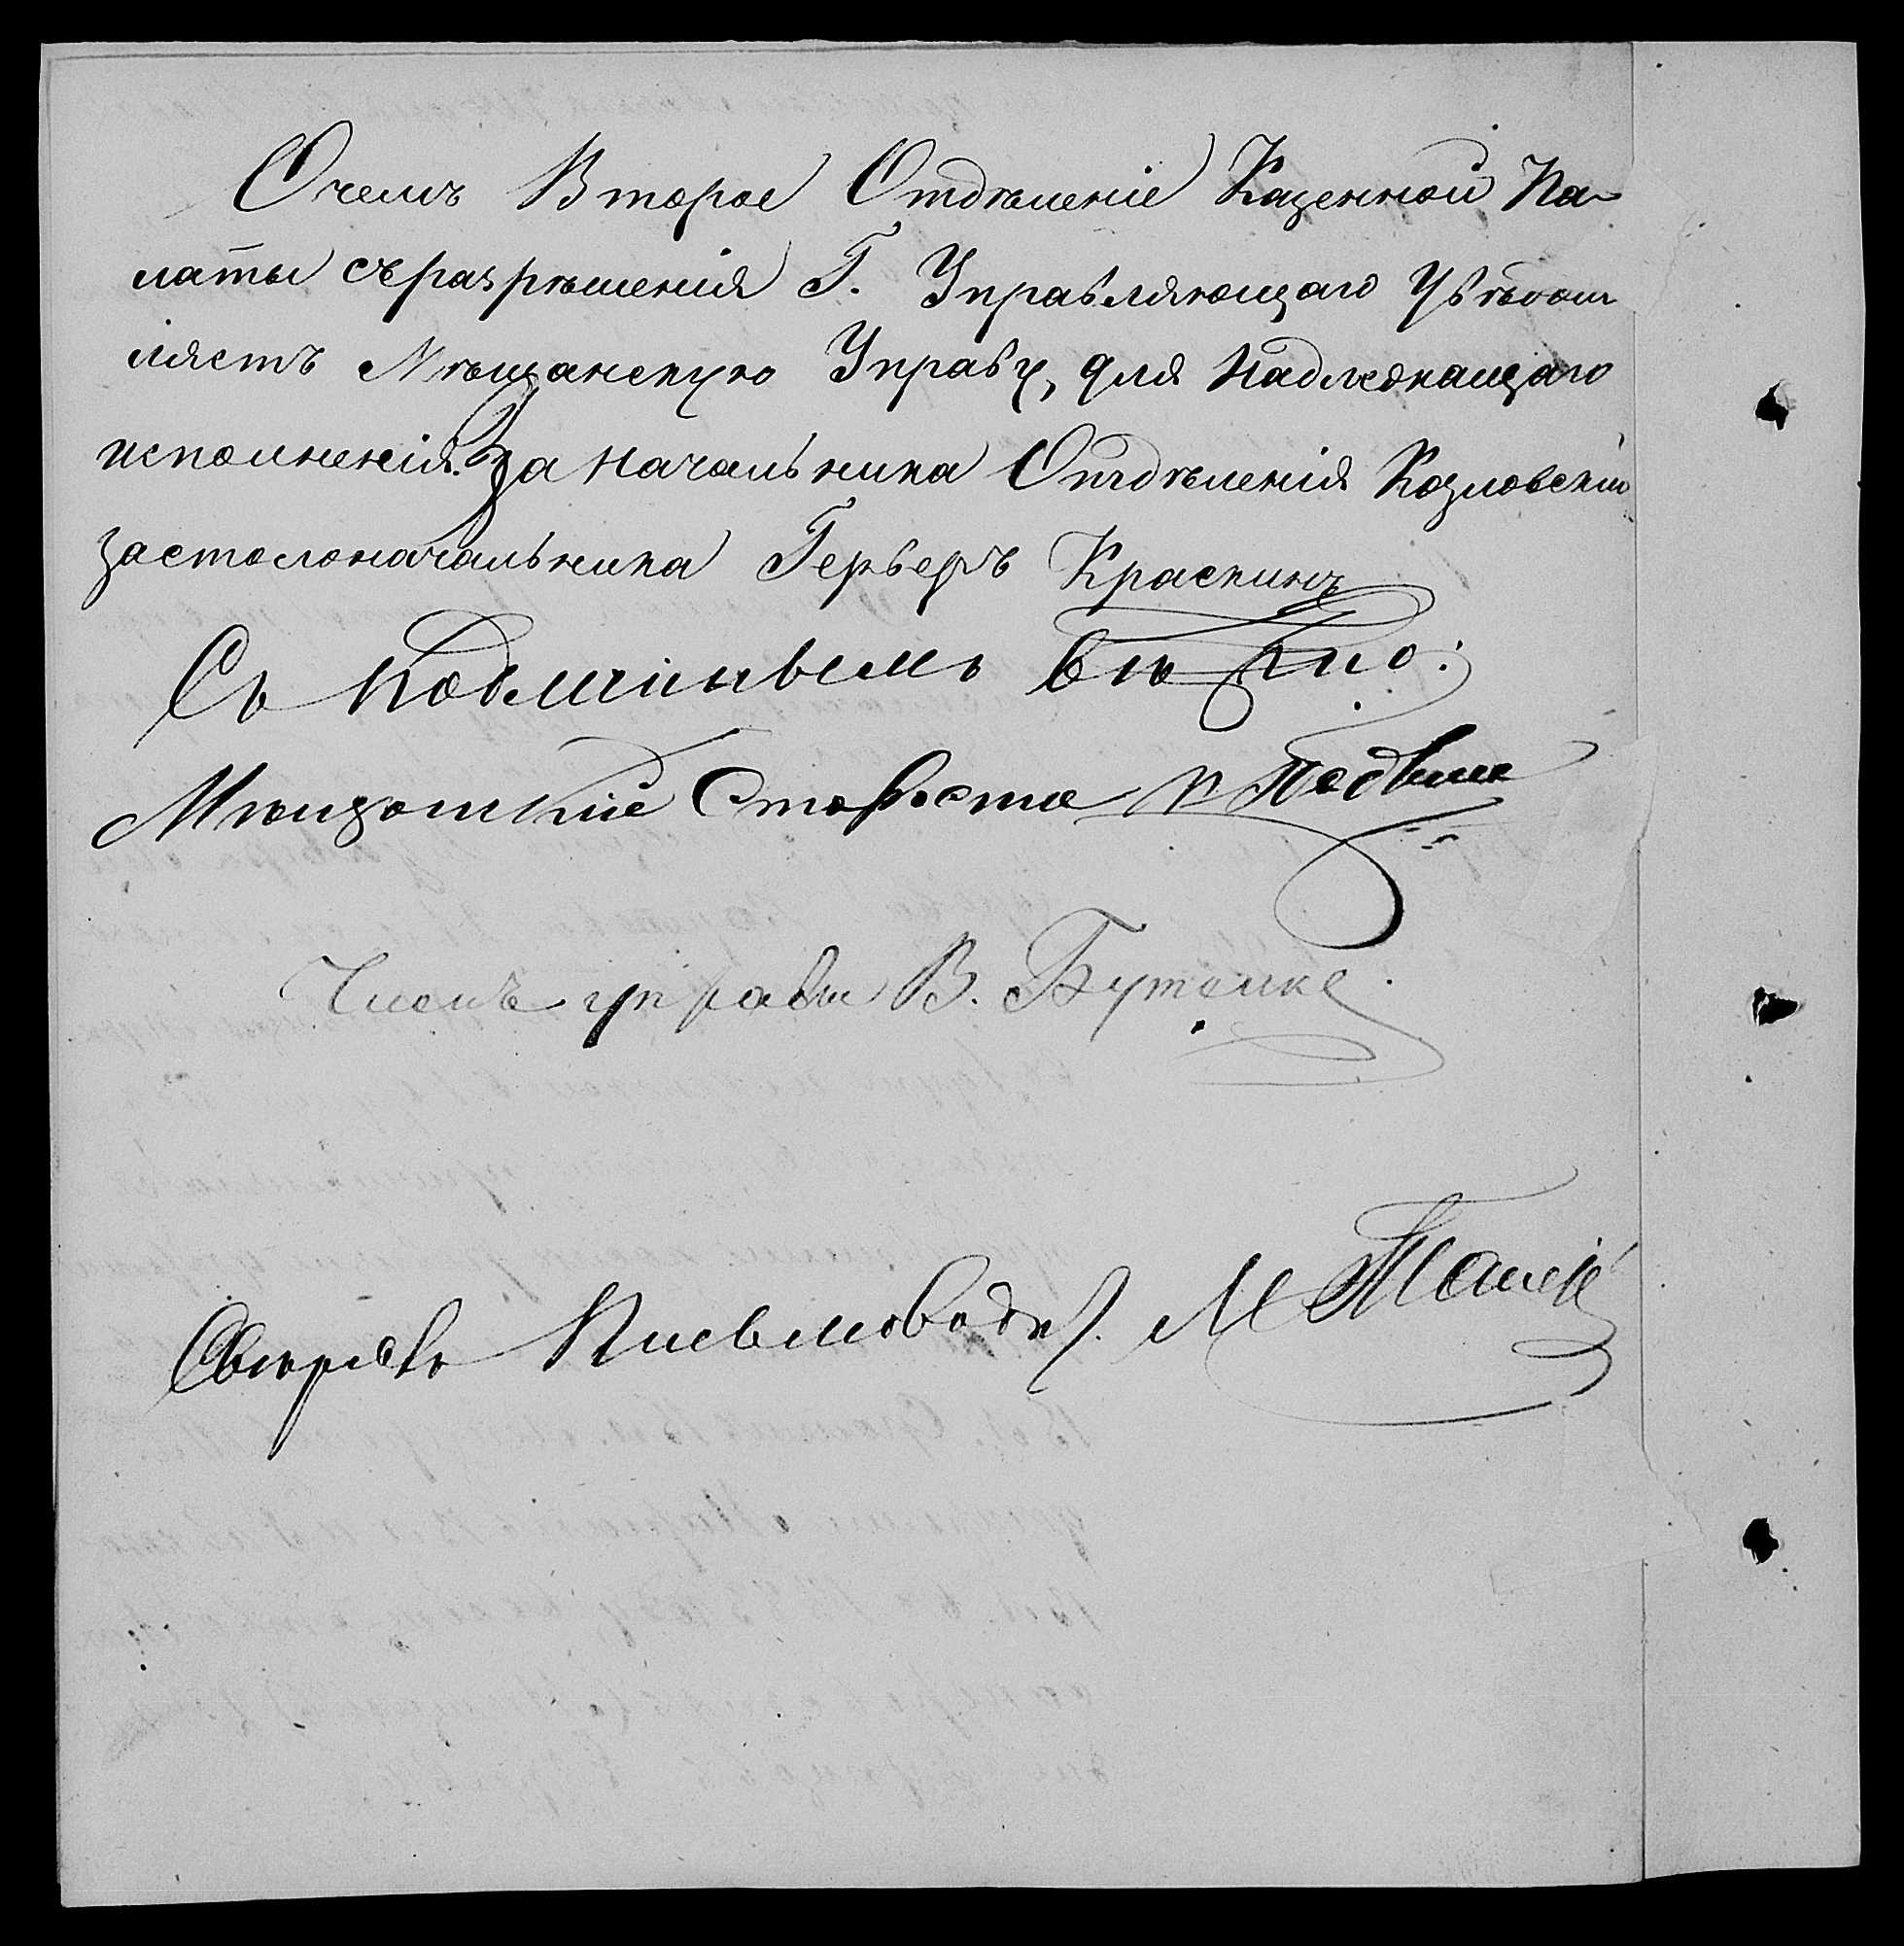 Очемъ Второе Отдѣленіе Казенной Па-
латы съ разрѣшенія Г. Управляющаго Увѣдом
ляетъ Мѣщанскую Управу, для Надлежащаго
исполненія. За Начальника Отдѣленія Козловскій
за столоначальника Герберъ Краскинъ
Съ Подлиннымъ вѣрно:
Мѣщанскій Староста
Членъ управы В. Бутенко
Свѣрялъ Письмовод. М